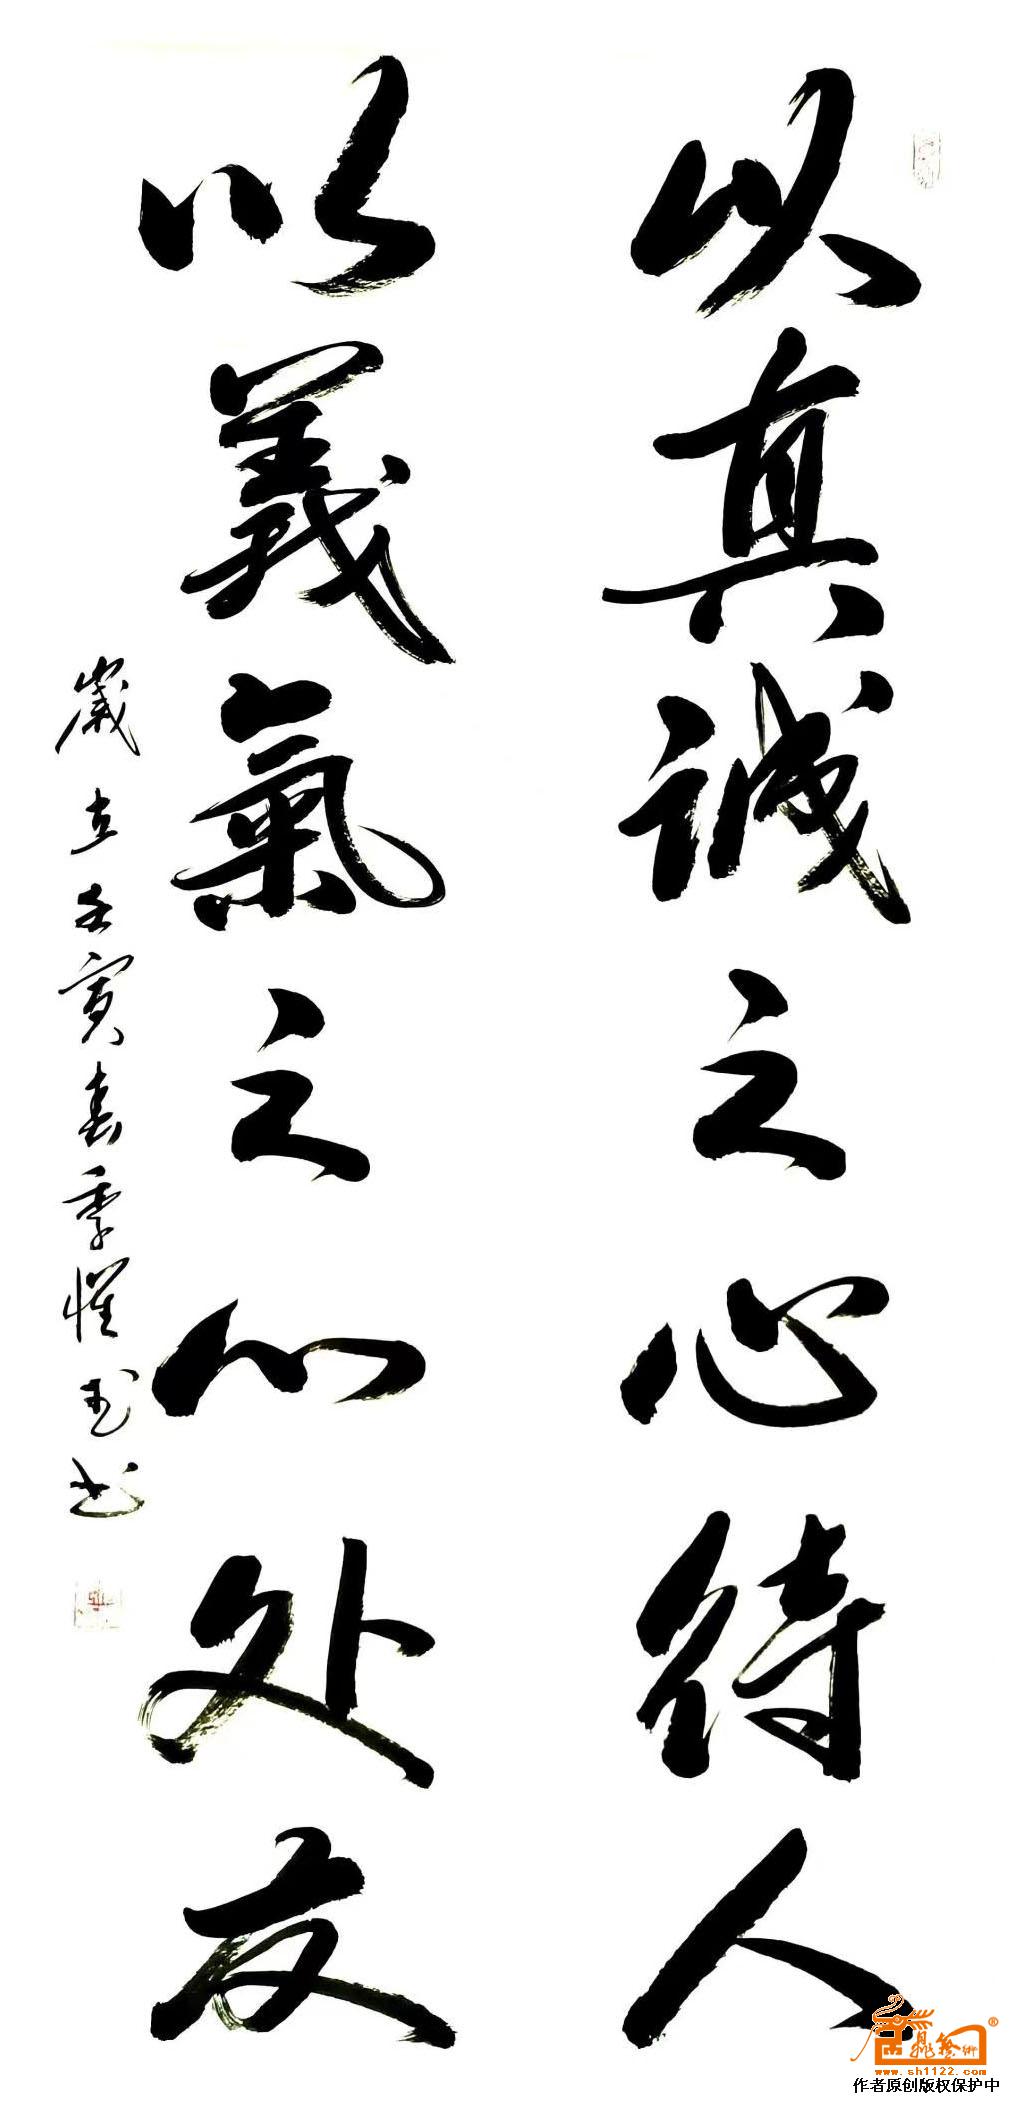 以真诚之心待人
以義氣之心处友
歲在壬寅春季惟书
www.sh1122.com
作者原创版权保护中